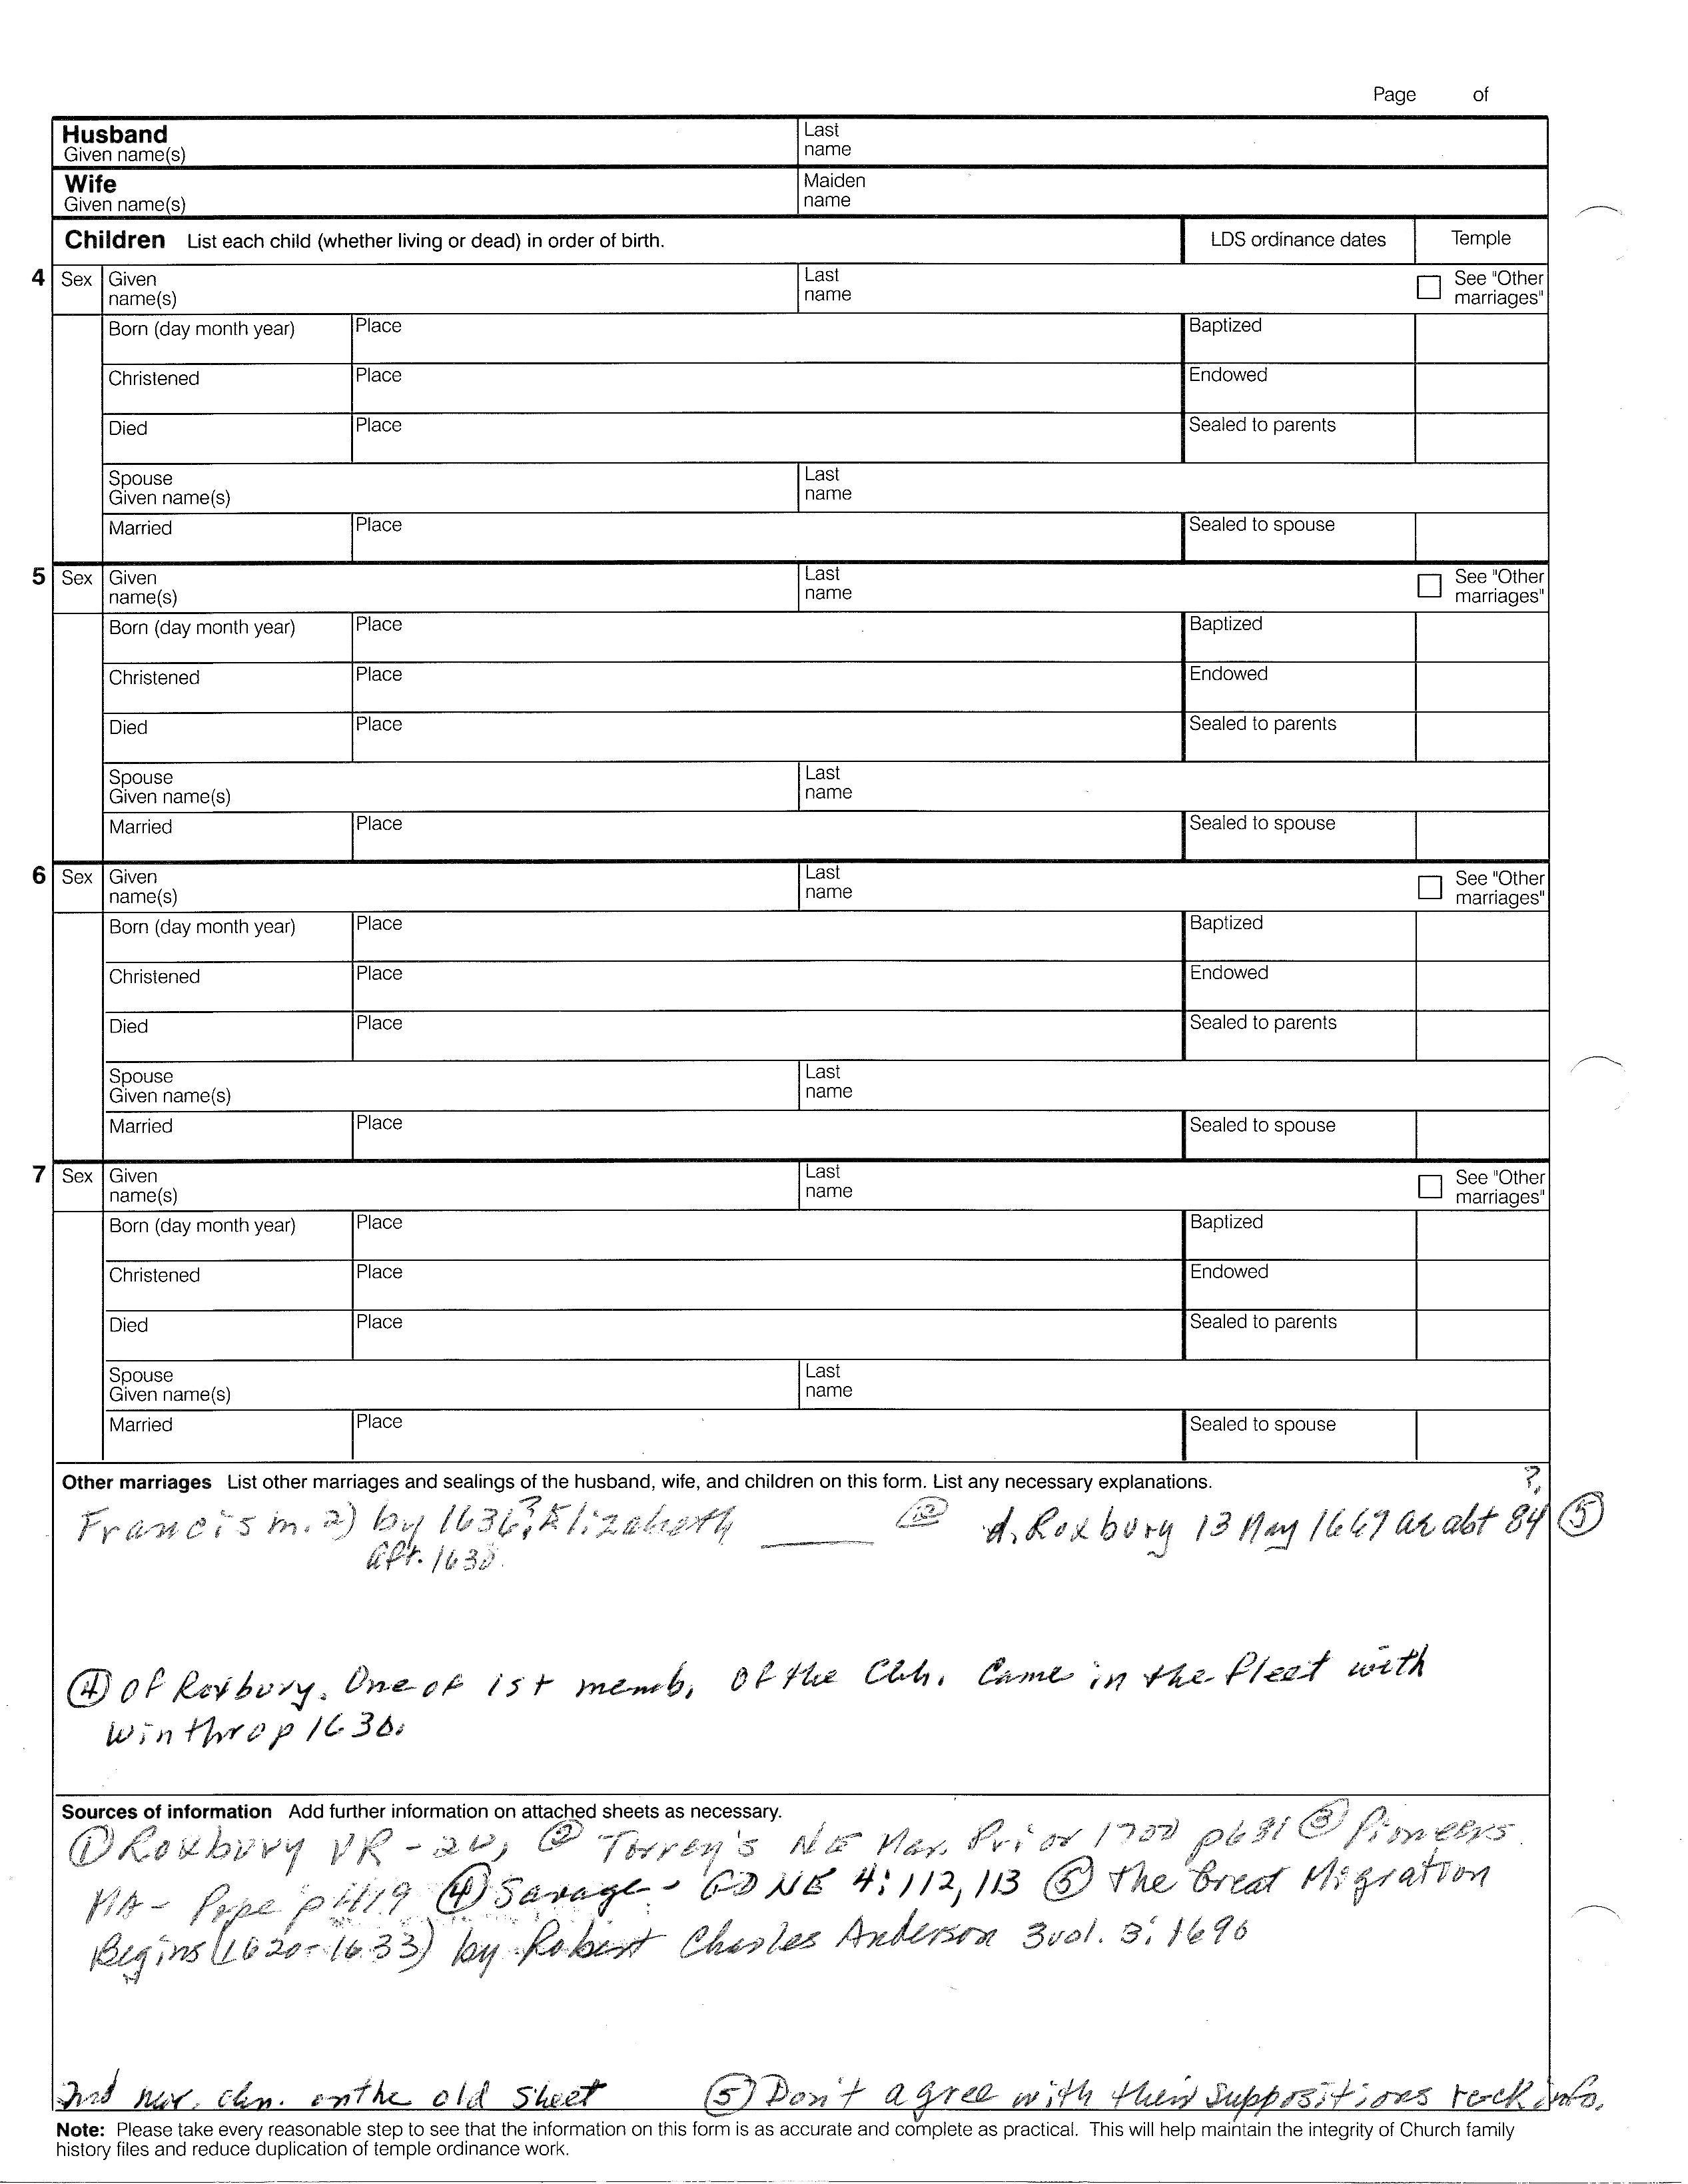 Page of
Husband Given name(s) Last name
Wife Given name(s) Maiden name
Children List each child (whether living or dead) in order of birth. LDS ordinance dates Temple
4 Sex Given name(s) Last name See "Other marriages"
Born (day month year) Place Baptized
Christened Place Endowed
Died Place Sealed to parents
Spouse Given name(s) Last name
Married Place Sealed to spouse
5 Sex Given name(s) Last name See "Other marriages"
Born (day month year) Place Baptized
Christened Place Endowed
Died Place Sealed to parents
Spouse Given name(s) Last name
Married Place Sealed to spouse
6 Sex Given name(s) Last name See "Other marriages"
Born (day month year) Place Baptized
Christened Place Endowed
Died Place Sealed to parents
Spouse Given name(s) Last name
Married Place Sealed to spouse
7 Sex Given name(s) Last name See "Other marriages"
Born (day month year) Place Baptized
Christened Place Endowed
Died Place Sealed to parents
Spouse Given name(s) Last name
Married Place Sealed to spouse
Other marriages List other marriages and sealings of the husband, wife, and children on this form. List any necessary explanations. ?
Francis m. 2) by 1636? Elizabeth ____ d. Roxbury 13 May 1669 ae abt 84 ⑤
aft. 1638
④ Of Roxbury. One of 1st memb. of the Chh. Came in the fleet with
Winthrop 1630.
Sources of information Add further information on attached sheets as necessary.
① Roxbury VR - ② Torrey's NE Mar. Prior 1700 p 631 ③ Pioneers
MA - Pope p 419 ④ Savage - GDNE 4:112,113 ⑤ The Great Migration
Begins (1620-1633) by Robert Charles Anderson 3 vol. 3:1696
2nd mar. chn. on the old sheet ⑤ Don't agree with their suppositions re info.
Note: Please take every reasonable step to see that the information on this form is as accurate and complete as practical. This will help maintain the integrity of Church family
history files and reduce duplication of temple ordinance work.